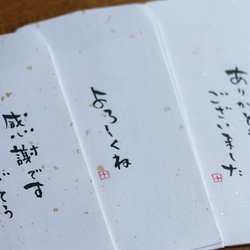 ありがと
ございました
よろしくね
感謝です